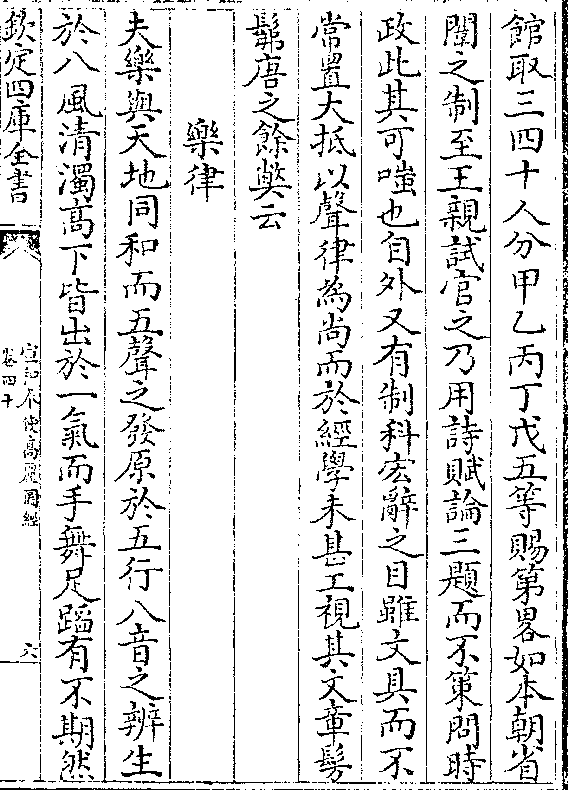 館取三四十人分甲乙丙丁戊五等賜第畧如本朝省
闈之制至王親試官之乃用詩賦論三題而不策問時
政此其可嗤也自外又有制科宏辭之目雖文具而不
常置大抵以聲律為尚而於經學未甚工視其文章髣
髴唐之餘弊云
樂律
夫樂與天地同和而五聲之發原於五行八音之辨生
於八風清濁高下皆出於一氣而手舞足蹈有不期然
欽定四庫全書
宣和奉使高麗圖經
卷四十
六